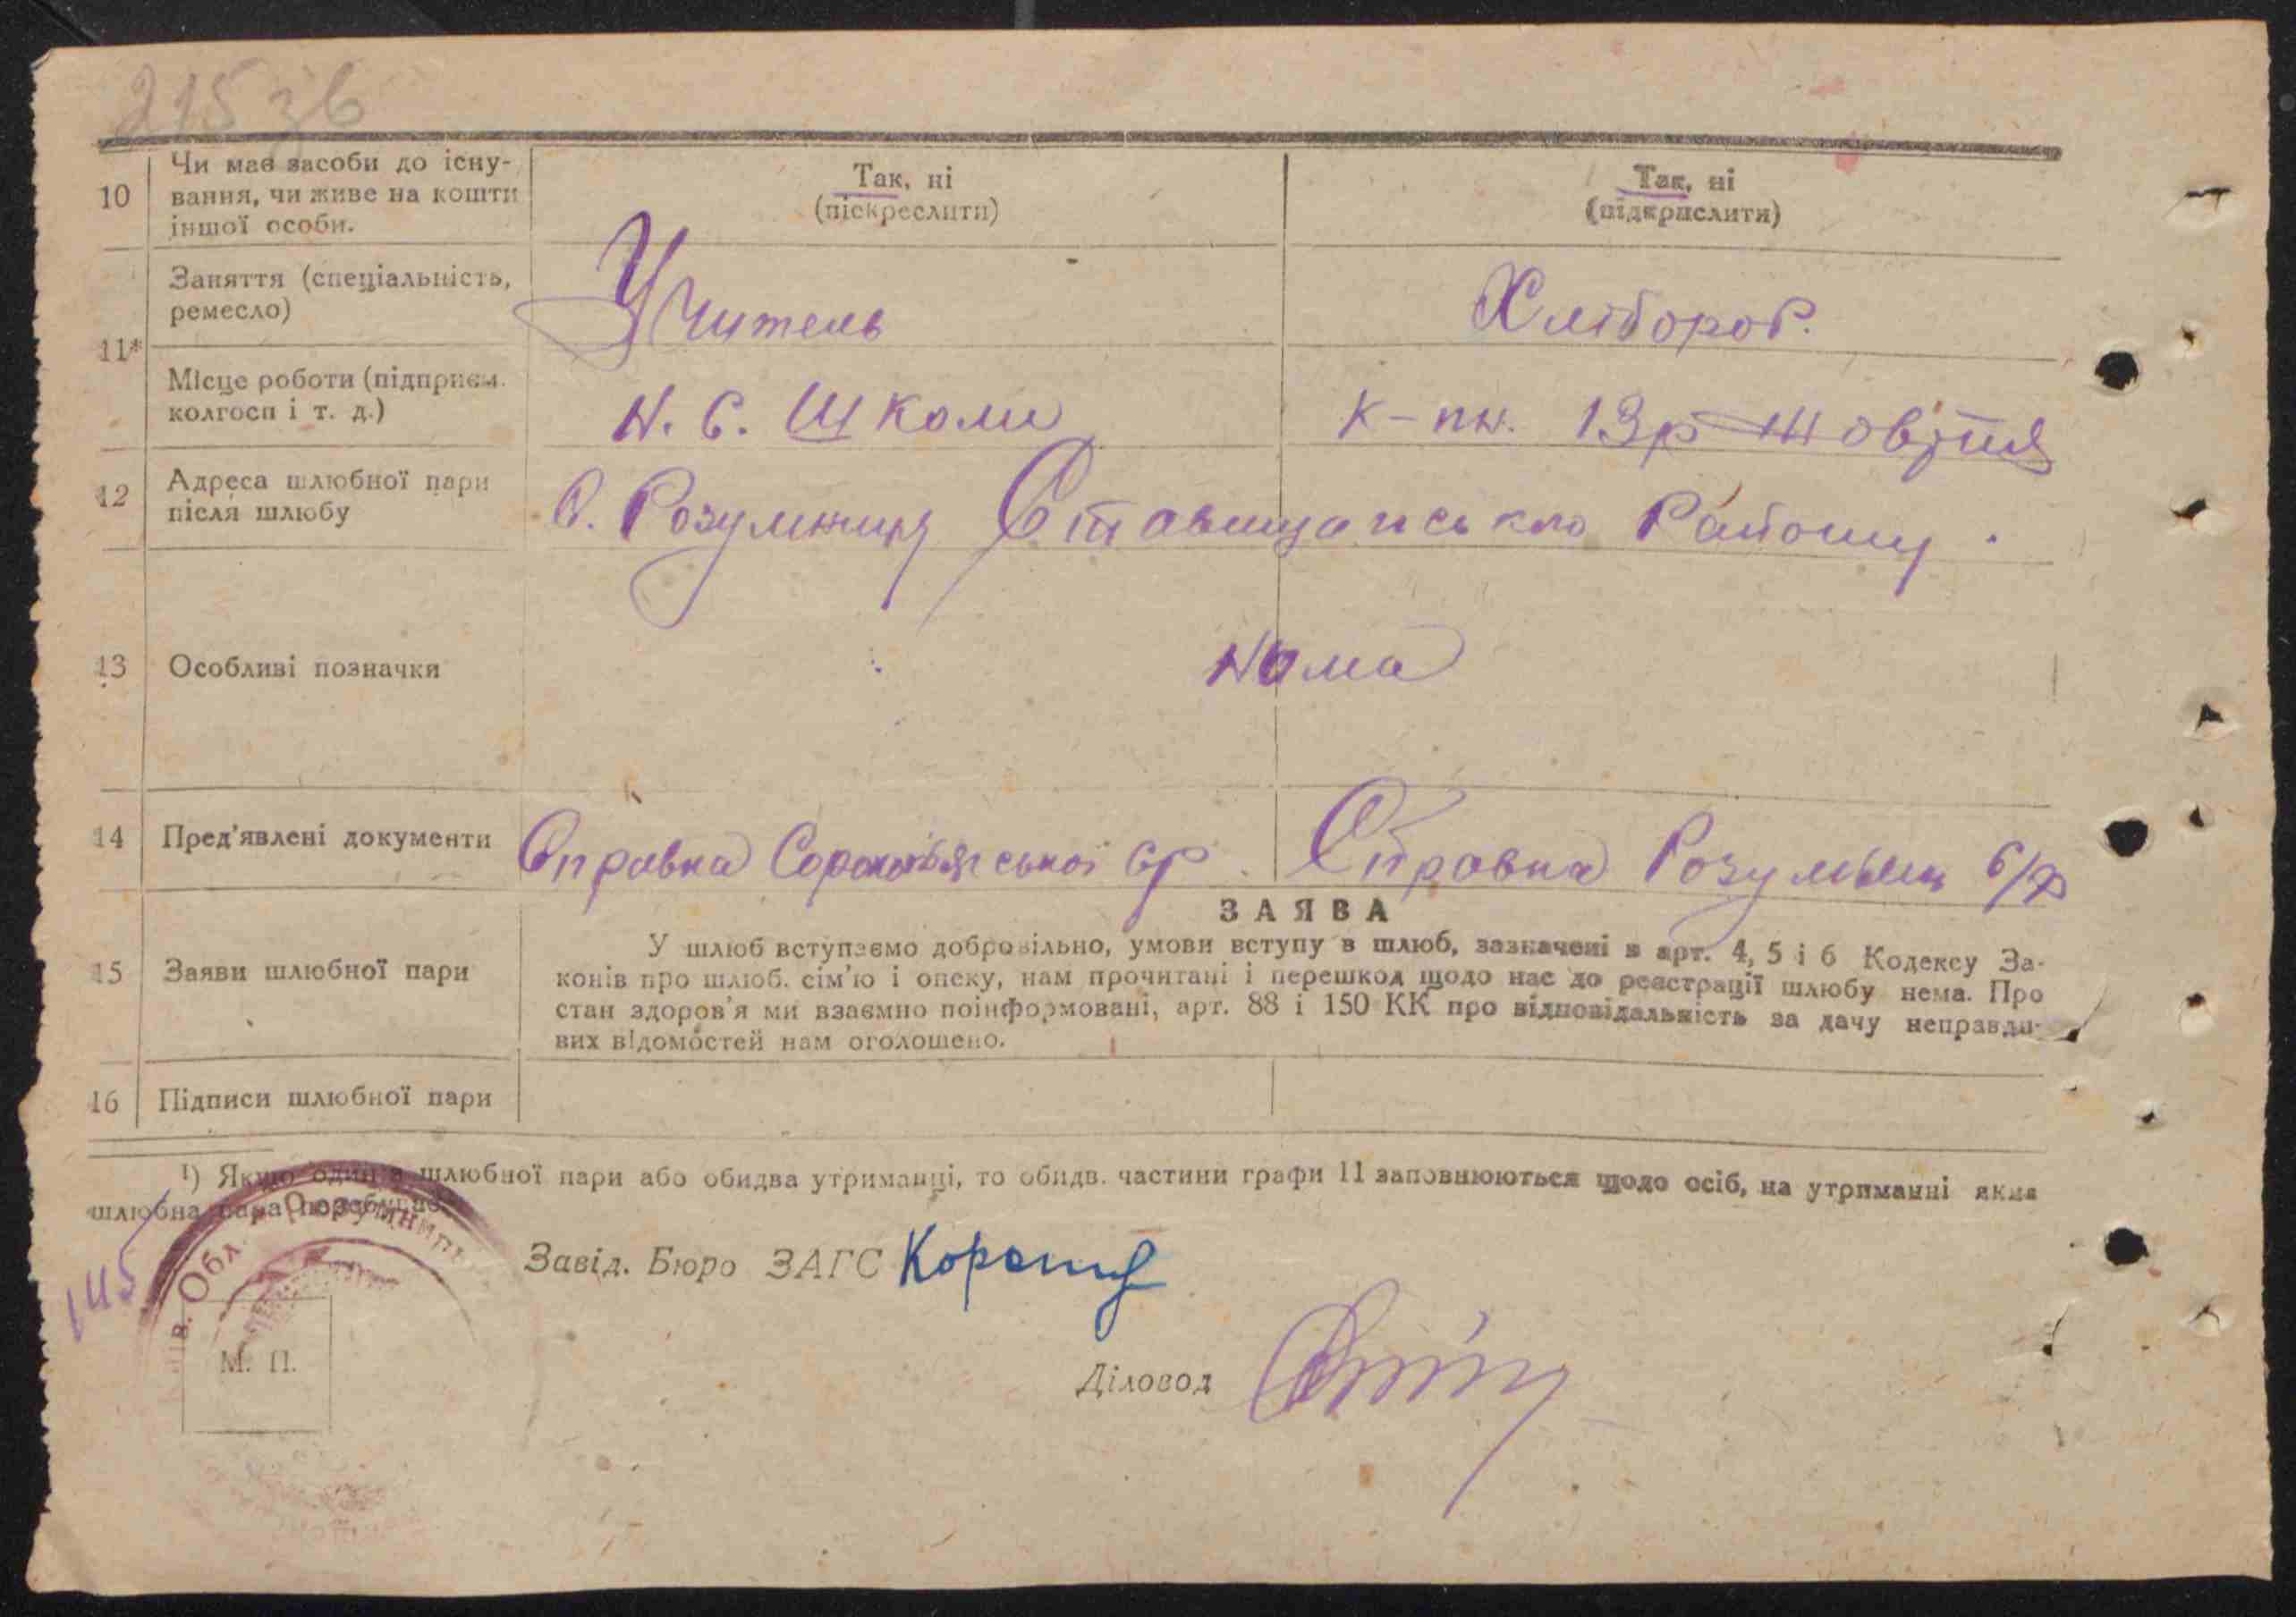 215 зв
10
Чи має засоби до існу-
вання, чи живе на кошти
іншої особи.
Так, ні
(піскреслити)
Так, ні
(підкрислити)
11*
Заняття (спеціальність,
ремесло)
Учитель
Хлібороб.
Місце роботи (підприєм.
колгосп і т. д.)
Н. С. Школи
к-пн. 13 р Жовтня
12
Адреса шлюбної пари
після шлюбу
С. Розумниця Ставищанського Району.
13
Особливі позначки
Нема
14
Пред'явлені документи
Справка ср.
Справка Розумниц с/р
15
Заяви шлюбної пари
ЗАЯВА
У шлюб вступаємо добровільно, умови вступу в шлюб, зазначені в арт. 4, 5 і 6 Кодексу За-
конів про шлюб. сім'ю і опеку, нам прочитані і перешкод щодо нас до реєстрації шлюбу нема. Про
стан здоров'я ми взаємно поінформовані, арт. 88 і 150 КК про відповідальність за дачу неправди-
вих відомостей нам оголошено.
16
Підписи шлюбної пари
1) Якщо один з шлюбної пари або обидва утриманці, то обидв. частини графи 11 заповнюються щодо осіб, на утриманні яких
шлюбна пара перебуває.
145
Обл.
М. П.
Завід. Бюро ЗАГС
Діловод